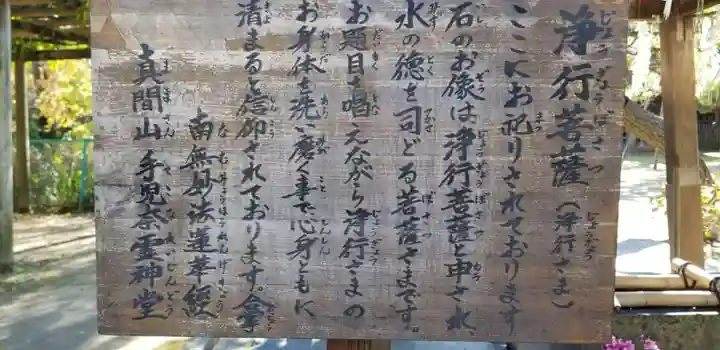 浄行菩薩（浄行さま）
ここにお祀りされております
石のお像は浄行菩薩と申され、
水の徳を司どる菩薩さまです。
お題目を唱えながら浄行さまの
お身体を洗い磨く事で心身ともに
清まると信仰されております。合掌
南無妙法蓮華經
真間山 手児奈霊神堂